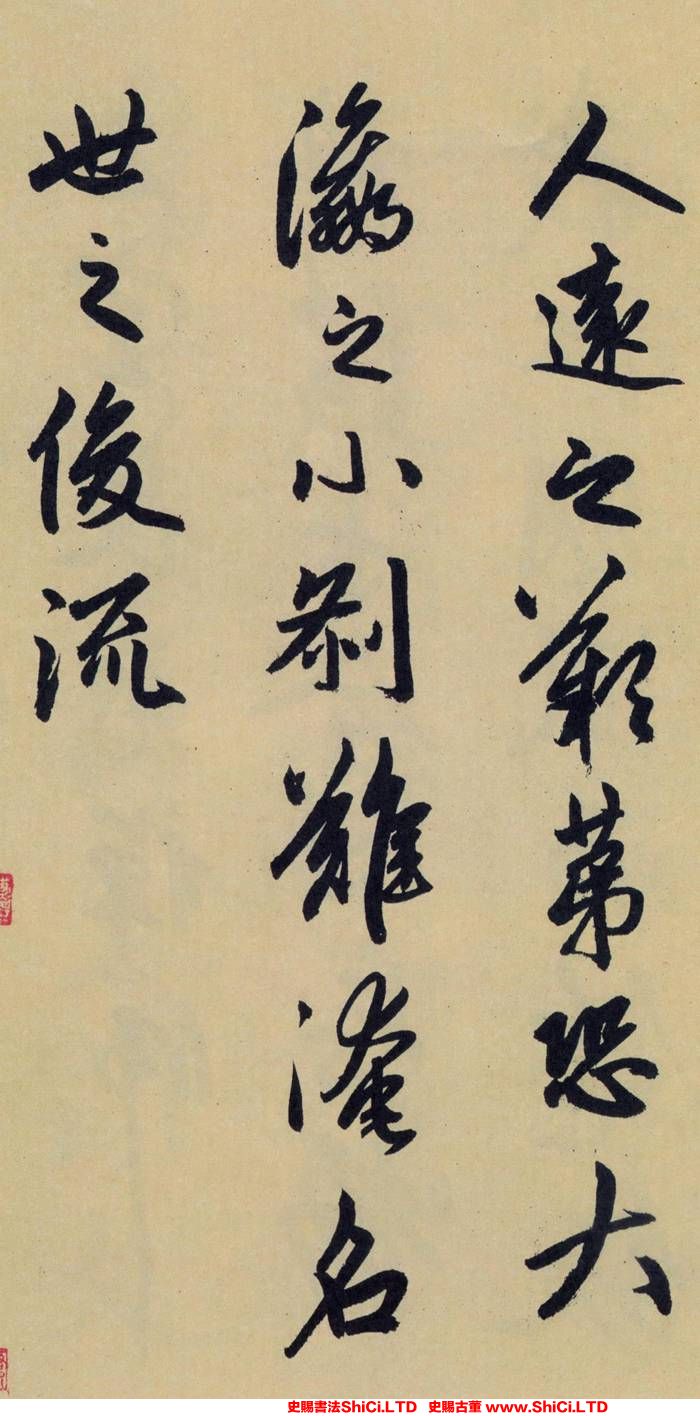 人遠之歎第恐大
瀛之小刹難淹名
世之俊流
史賜書法ShiCi.LTD 史賜古董 www.ShiCi.LTD